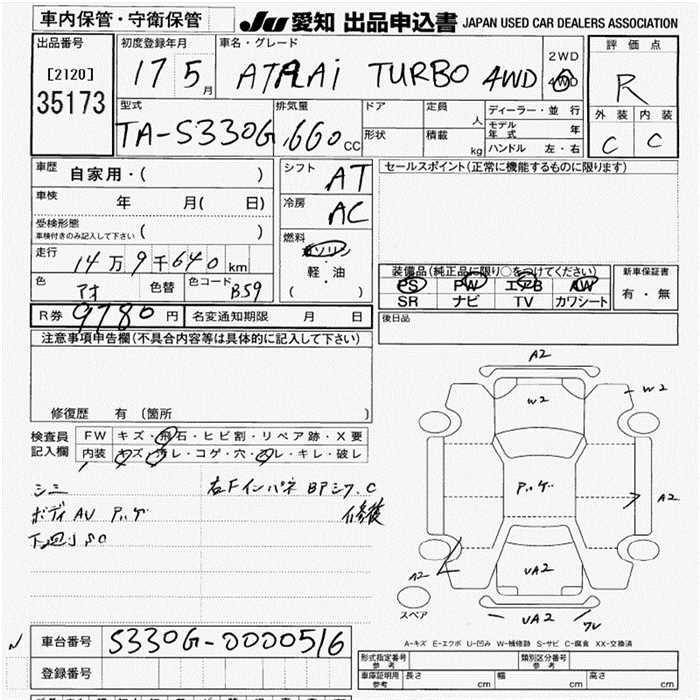 車内保管・守衛保管
JU 愛知 出品申込書 JAPAN USED CAR DEALERS ASSOCIATION
出品番号
[2120]
35173
初度登録年月
17 5月
車名・グレード
ATRAi TURBO 4WD
2WD
4WD
評価点
R
外装 内装
C C
型式
TA-S330G
排気量
660cc
ドア
形状
定員 人
積載 kg
ディーラー・並行
モデル年式 年
ハンドル 左・右
車歴 自家用・( )
車検 年 月( 日)
受検形態
車検付きのみ記入して下さい ( )
走行 14万9千640km
色 アオ 色替 色コード B59
シフト AT
冷房 AC
燃料
ガソリン
軽・油
( )
セールスポイント(正常に機能するものに限ります)
装備品(純正品に限り○をつけてください)
PS PW エアB AW
SR ナビ TV カワシート
新車保証書
有・無
R券 9780円 名変通知期限 月 日
後日品
注意事項申告欄(不具合内容等は具体的に記入して下さい)
修復歴 有(箇所 )
検査員記入欄
FW キズ・飛石・ヒビ割・リペア跡・X要
内装 キズ・汚レ・コゲ・穴・スレ・キレ・破レ
シミ 右FインパネBPシワ.C
ボディAV 修後
A2
W2
W2
A2
A2
UA2
UA2
スペア
A-キズ E-エクボ U-凹み W-補修跡 S-サビ C-腐食 XX-交換済
車台番号 S330G-0000516
登録番号
形式指定番号 参考
類別区分番号 参考
車庫証明用 参考
長さ cm 幅 cm 高さ cm